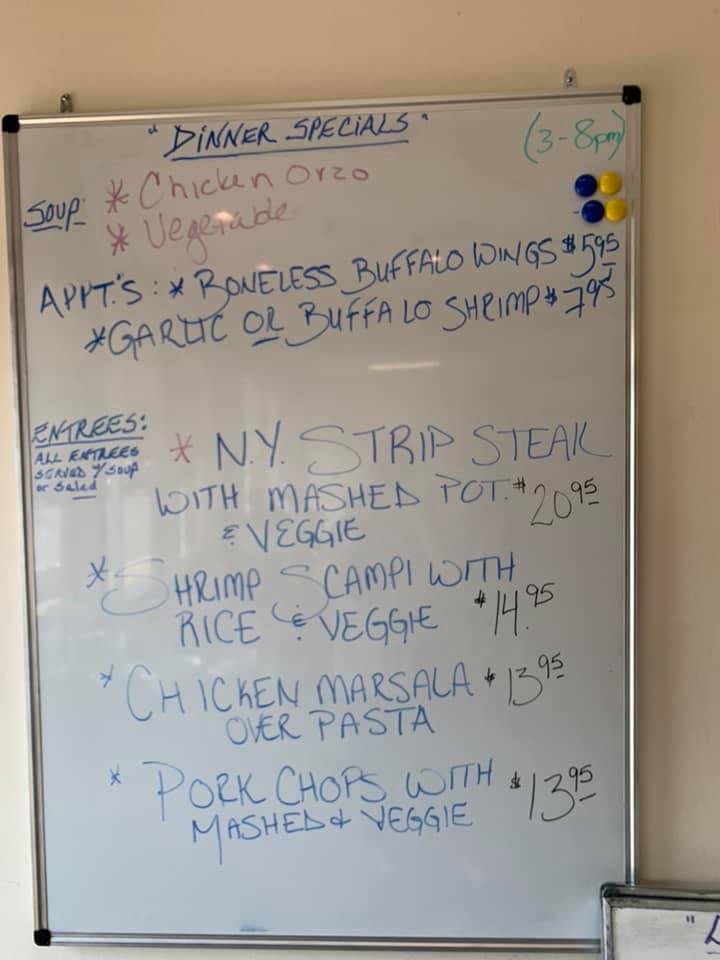 "DINNER SPECIALS"
(3-8pm)
SOUP: * Chicken Orzo
* Vegetable
APPT.'S: * BONELESS BUFFALO WINGS $5.95
* GARLIC OR BUFFALO SHRIMP $7.95
ENTREES:
ALL ENTREES
SERVED w/ SOUP
or Salad
* N.Y. STRIP STEAK
WITH MASHED POT. $20.95
& VEGGIE
* SHRIMP SCAMPI WITH
RICE & VEGGIE $14.95
* CHICKEN MARSALA $13.95
OVER PASTA
* PORK CHOPS WITH $13.95
MASHED & VEGGIE